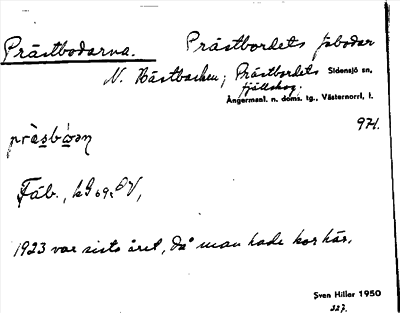 Prästbodarna. Prästbordets fäbodar
N. Hästbacken; Prästbordets Sidensjö sn,
fjällskog.
Ångermanl. n. doms. tg., Västernorrl. l.
974.
Fäb.,
1923 var sista året, då man hade kor här.
Sven Hiller 1950
327.